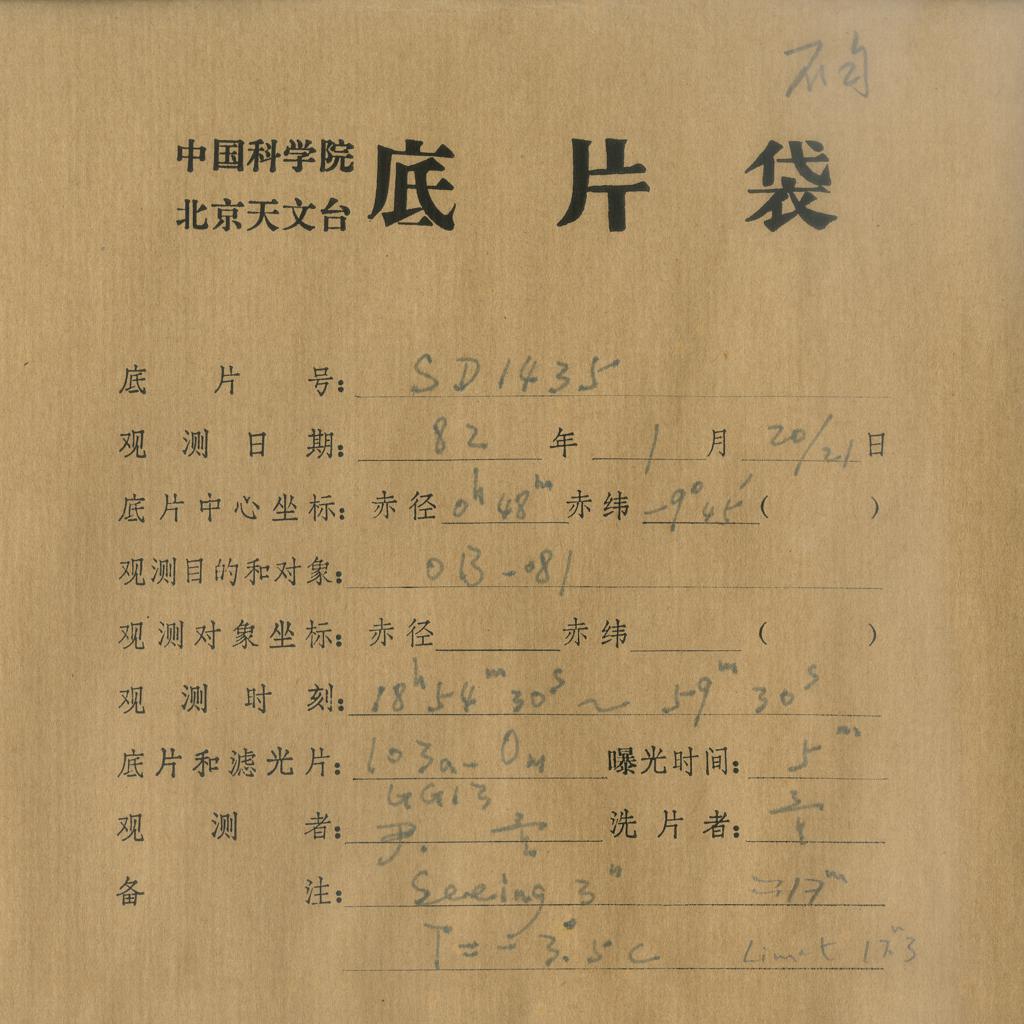 中国科学院
北京天文台 底片袋
底片号: SD1435
观测日期: 82 年 1 月 20/21 日
底片中心坐标: 赤径 0h 48m 赤纬 -9° 45′ ( )
观测目的和对象: 013-081
观测对象坐标: 赤径 赤纬 ( )
观测时刻: 18h 54m 30s ~ 59m 30s
底片和滤光片: 103a-O 曝光时间: 5m
GG13
观测者: 尹. 洗片者:
备注: Seeing 3" 17m
T = -3°.5 C Limit 17.3